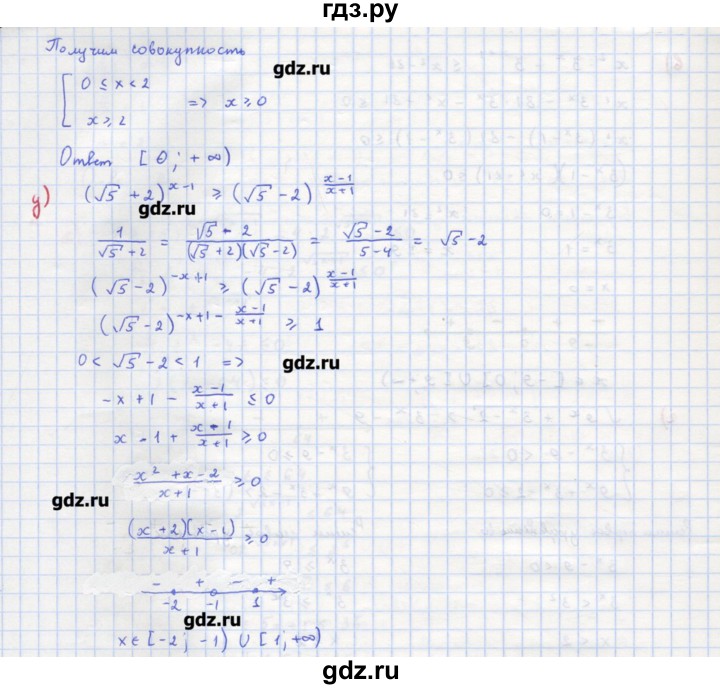 гдз.ру
Получим совокупность
gdz.ru
[ 0 ≤ x < 2
x ≥ 2
=> x ≥ 0
Ответ [0; +∞)
у) (√5 + 2)^(x-1) ≥ (√5 - 2)^((x-1)/(x+1))
gdz.ru
1/(√5 + 2) = (√5 - 2)/((√5 + 2)(√5 - 2)) = (√5 - 2)/(5 - 4) = √5 - 2
(√5 - 2)^(-x+1) ≥ (√5 - 2)^((x-1)/(x+1))
gdz.ru
(√5 - 2)^(-x+1-(x-1)/(x+1)) ≥ 1
0 < √5 - 2 < 1 =>
gdz.ru
-x + 1 - (x-1)/(x+1) ≤ 0
x - 1 + (x-1)/(x+1) ≥ 0
(x² + x - 2)/(x+1) ≥ 0
gdz.ru
((x+2)(x-1))/(x+1) ≥ 0
- + - +
-2 -1 1
gdz.ru
x ∈ [-2; -1) ∪ [1; +∞)
gdz.ru